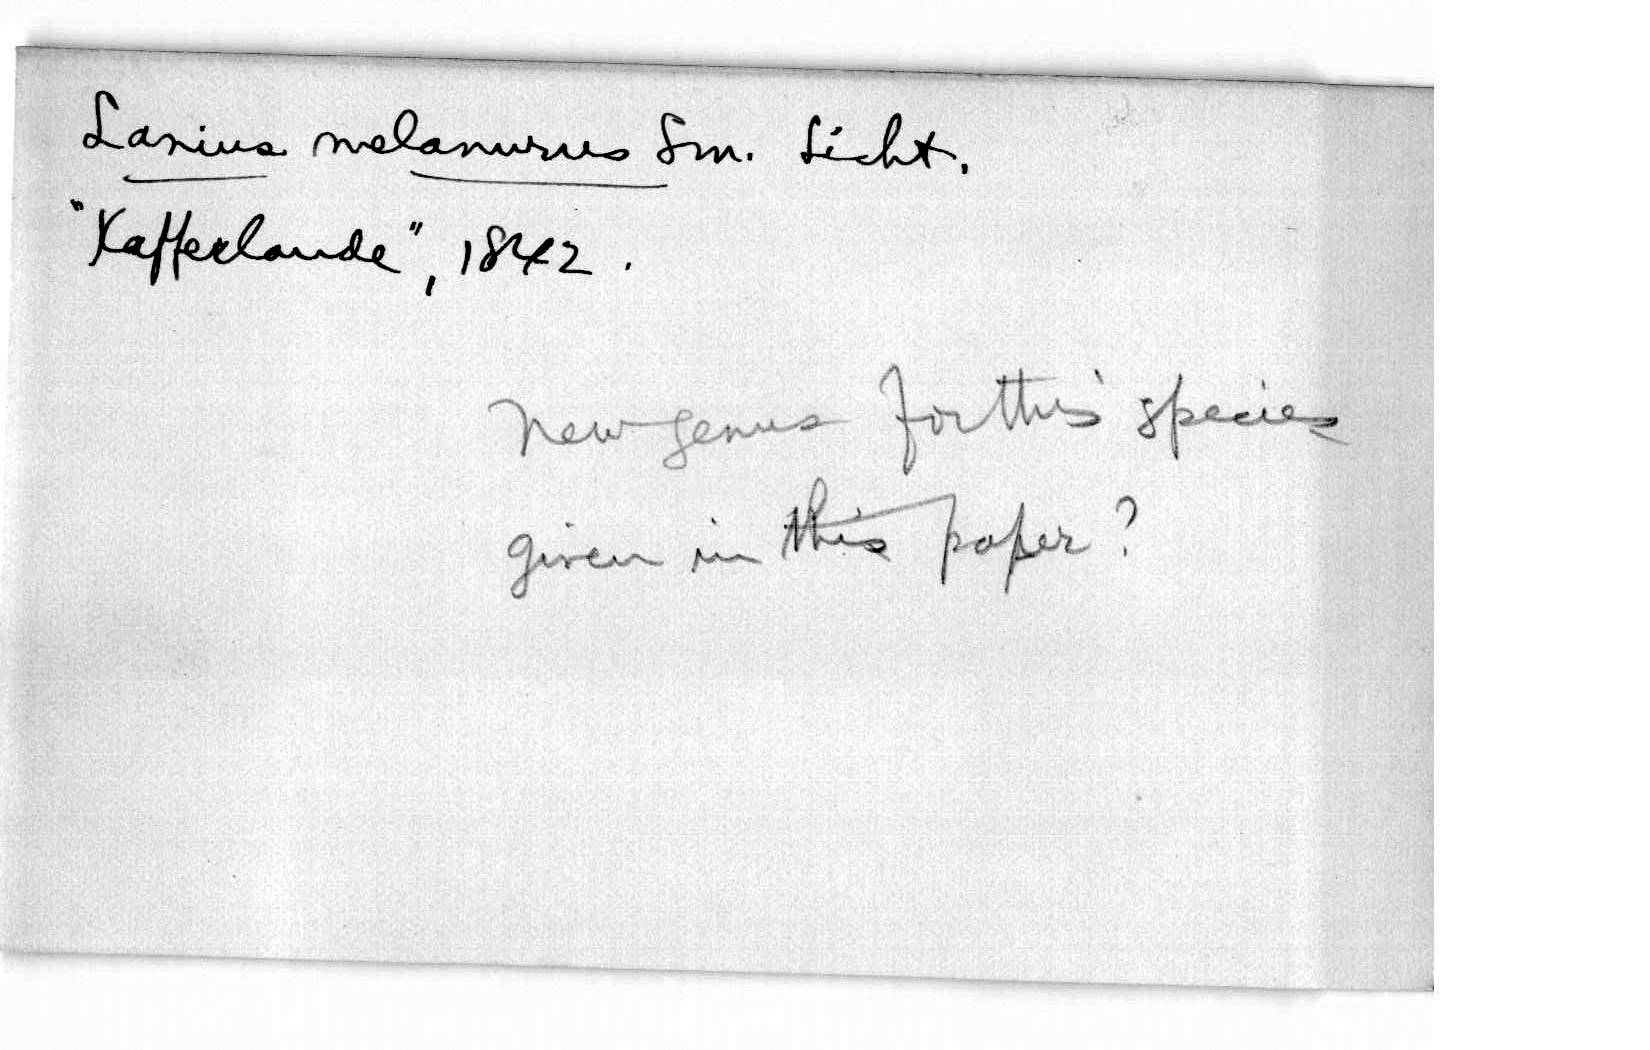 Lanius melanurus Sm. Licht.
"Kafferlande", 1842.
New genus for this species
given in this paper?